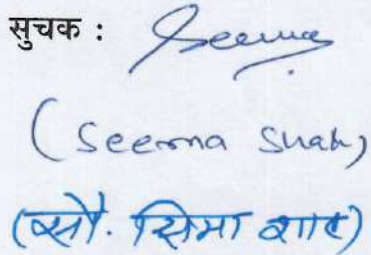 सुचक : Seema
(Seema Shah)
(सौ. सिमा शाह)